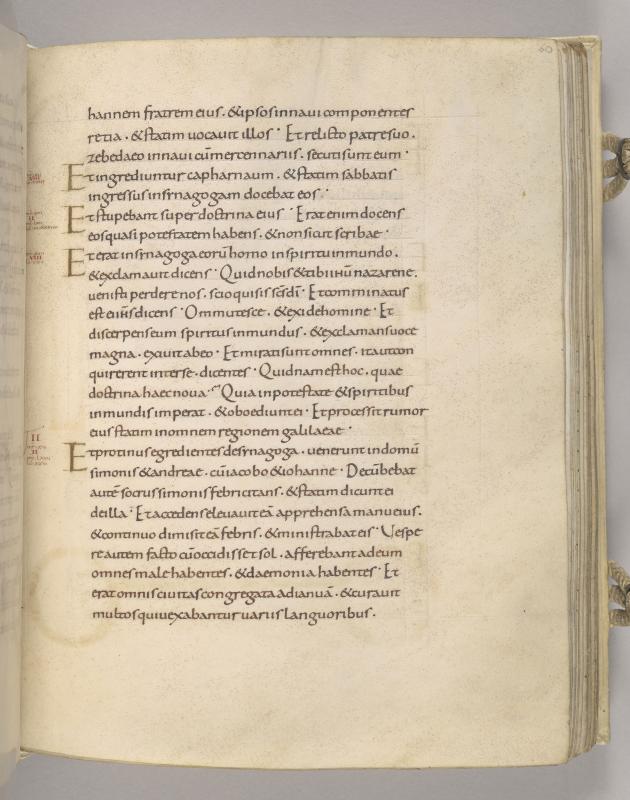 60
hannem fratrem eius · & ipsos innaui componentes
retia · & statim uocauit illos · Et relicto patre suo ·
zebedaeo innaui cū mercennariis · secuti sunt eum ·
Et ingrediuntur capharnaum · & statim sabbatis
ingressus insynagogam docebat eos ·
Et stupebant super doctrina eius · Erat enim docens
eos quasi potestatem habens · & non sicut scribae ·
Et erat insynagoga eorū homo inspiritu inmundo ·
& exclamauit dicens · Quid nobis & tibi ihū nazarene ·
uenisti perdere nos · scio quis is s̄c̄s d̄ī · Et comminatus
est ei ih̄s dicens · Ommutesce · & exi de homine · Et
discerpens eum spiritus inmundus · & exclamans uoce
magna · exiuit ab eo · Et mirati sunt omnes · ita ut con
quirerent interse · dicentes · Quidnam est hoc · quae
doctrina haec noua · Quia inpotestate & spiritibus
inmundis imperat · & oboediunt ei · Et processit rumor
eius statim inomnem regionem galilaeae ·
Et protinus egredientes de synagoga · uenerunt indomū
simonis & andreae · cū iacobo & iohanne · Decūbebat
autē socrus simonis febricitans · & statim dicunt ei
de illa · Et accedens eleuauit eā apprehensa manu eius ·
& continuo dimisit eā febris · & ministrabat eis · Uespe
re autem facto cū occidisset sol · afferebant ad eum
omnes male habentes · & daemonia habentes · Et
erat omnis ciuitas congregata ad ianuā · & curauit
multos qui uexabantur uariis languoribus ·
II